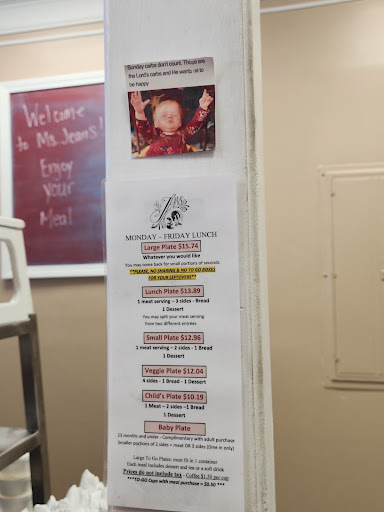 Sunday carbs don't count. Those are
the Lord's carbs and He wants us to
be happy
Welcome
to Ms. Jeans!
Enjoy
your
Meal
MONDAY – FRIDAY LUNCH
Large Plate $15.74
Whatever you would like
You may come back for small portions of seconds
**PLEASE, NO SHARING & NO TO GO BOXES
FOR YOUR LEFTOVERS**
Lunch Plate $13.89
1 meat serving – 3 sides - Bread
1 Dessert
You may split your meat serving
from two different entrées
Small Plate $12.96
1 meat serving – 2 sides - 1 Bread
1 Dessert
Veggie Plate $12.04
4 sides - 1 Bread - 1 Dessert
Child's Plate $10.19
1 Meat – 2 sides –1 Bread
1 Dessert
Baby Plate
23 months and under - Complimentary with adult purchase
Smaller portions of 2 sides + meat OR 3 sides (Dine in only)
Large To Go Plates: must fit in 1 container
Each meal includes dessert and tea or a soft drink
Prices do not include tax - Coffee $1.50 per cup
***TO-GO Cups with meal purchase = $0.50 ***